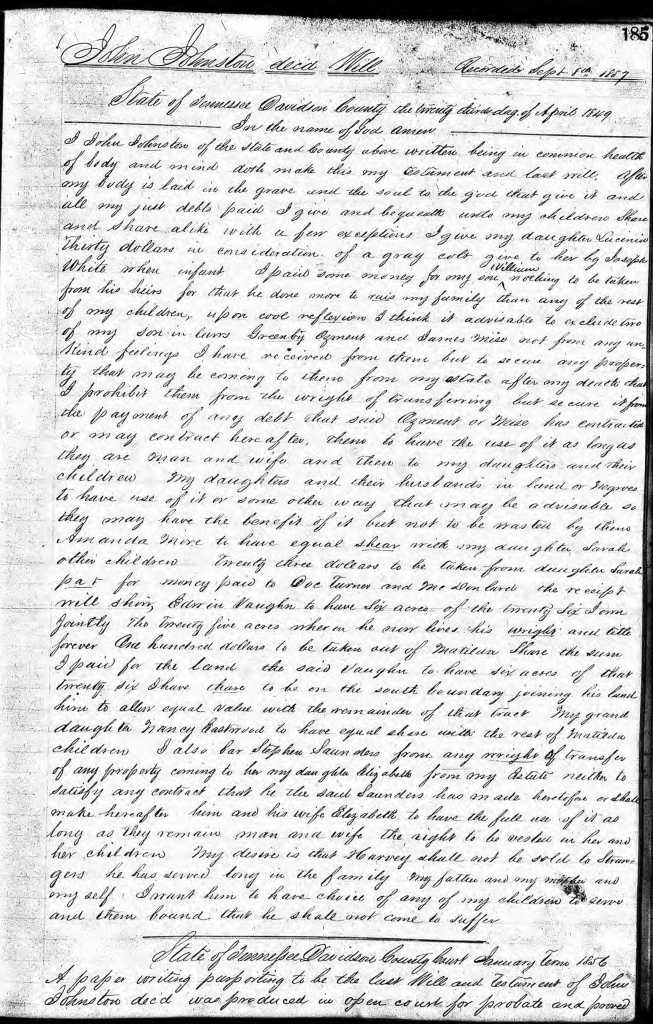 185
John Johnston decd Will Recorded Sept 8th 1857
State of Tennessee Davidson County the twenty third day of April 1849
In the name of God Amen
I John Johnston of the state and County above written being in common health
of body and mind doth make this my testament and last will. After
my body is laid in the grave and the soul to the god that give it and
all my just debts paid I give and bequeath unto my children Share
and share alike with a few exceptions I give my daughter Lucinda
Thirty dollars in consideration of a gray colt give to her by Joseph
White when infant I paid some money for my son William nothing to be taken
from his heirs for that he done more to rais my family than any of the rest
of my children, upon cool reflexion I think it advisable to exclude two
of my son in laws Greenby Ozment and James Mise not from any un
kind feelings I have received from them but to secure any proper
ty that may be coming to them from my estate after my death that
I prohibit them from the wright of transfering but secure it from
the payment of any debt that said Ozment or Mise has contracted
or may contract hereafter, them to have the use of it as long as
they are man and wife and then to my daughters and their
children My daughters and their husbands in land or Negroes
to have use of it or some other way that may be advisable so
they may have the benefit of it but not to be wasted by them
Amanda More to have equal shear with my daughter Sarah
other children twenty three dollars to be taken from daughter Sarah
part for money paid to Doc Turner and McDonlard the receipt
will show, Edwin Vaughn to have Six acres of the twenty Six I own
jointly the twenty five acres wher on he now lives his wright and title
forever One hundred dollars to be taken out of Matilda Share the sum
I paid for the land the said Vaughn to have six acres of that
twenty six I have to be on the south boundary joining his land
him to allow equal value with the remainder of that tract My grand
daughter Nancy Eastwood to have equal share with the rest of Matilda
children I also bar Stephen Saunders from any wright of transfer
of any property coming to her my daughter Elizabeth from my Estate neither to
satisfy any contract that he the said Saunders has made heretofore or shall
make hereafter him and his wife Elizabeth to have the full use of it as
long as they remain man and wife the right to be vested in her and
her children My desire is that Harvey shall not be sold to Stran
gers he has served long in the family my father and my mother and
my self I want him to have choice of any of my children to serve
and them bound that he shall not come to suffer
State of Tennessee, Davidson County Court January Term 1856
A paper writing purporting to be the last Will and Testament of John
Johnston decd was produced in open court for probate and proved